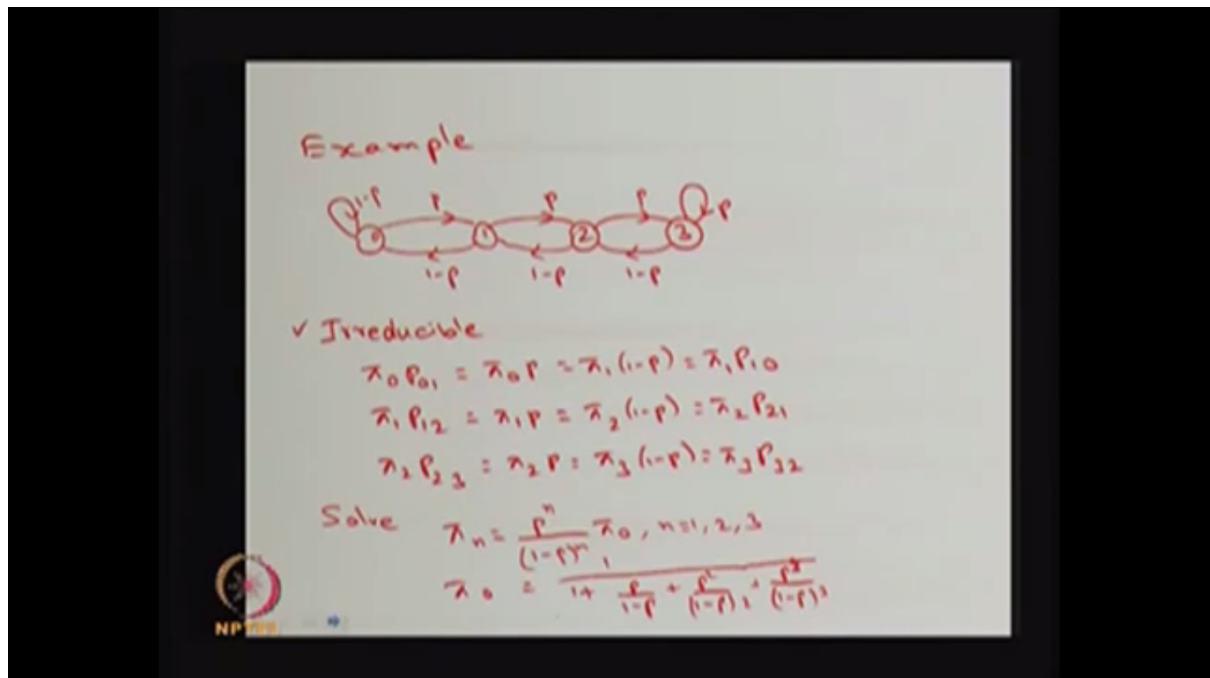 Example
1-p p p p p
0 1 2 3
1-p 1-p 1-p
✓ Irreducible
π₀P₀₁ = π₀p = π₁(1-p) = π₁P₁₀
π₁P₁₂ = π₁p = π₂(1-p) = π₂P₂₁
π₂P₂₃ = π₂p = π₃(1-p) = π₃P₃₂
Solve πₙ = pⁿ/(1-p)ⁿ π₀, n=1, 2, 3
π₀ = 1/(1+ p/(1-p) + p²/(1-p)² + p³/(1-p)³)
NPTEL